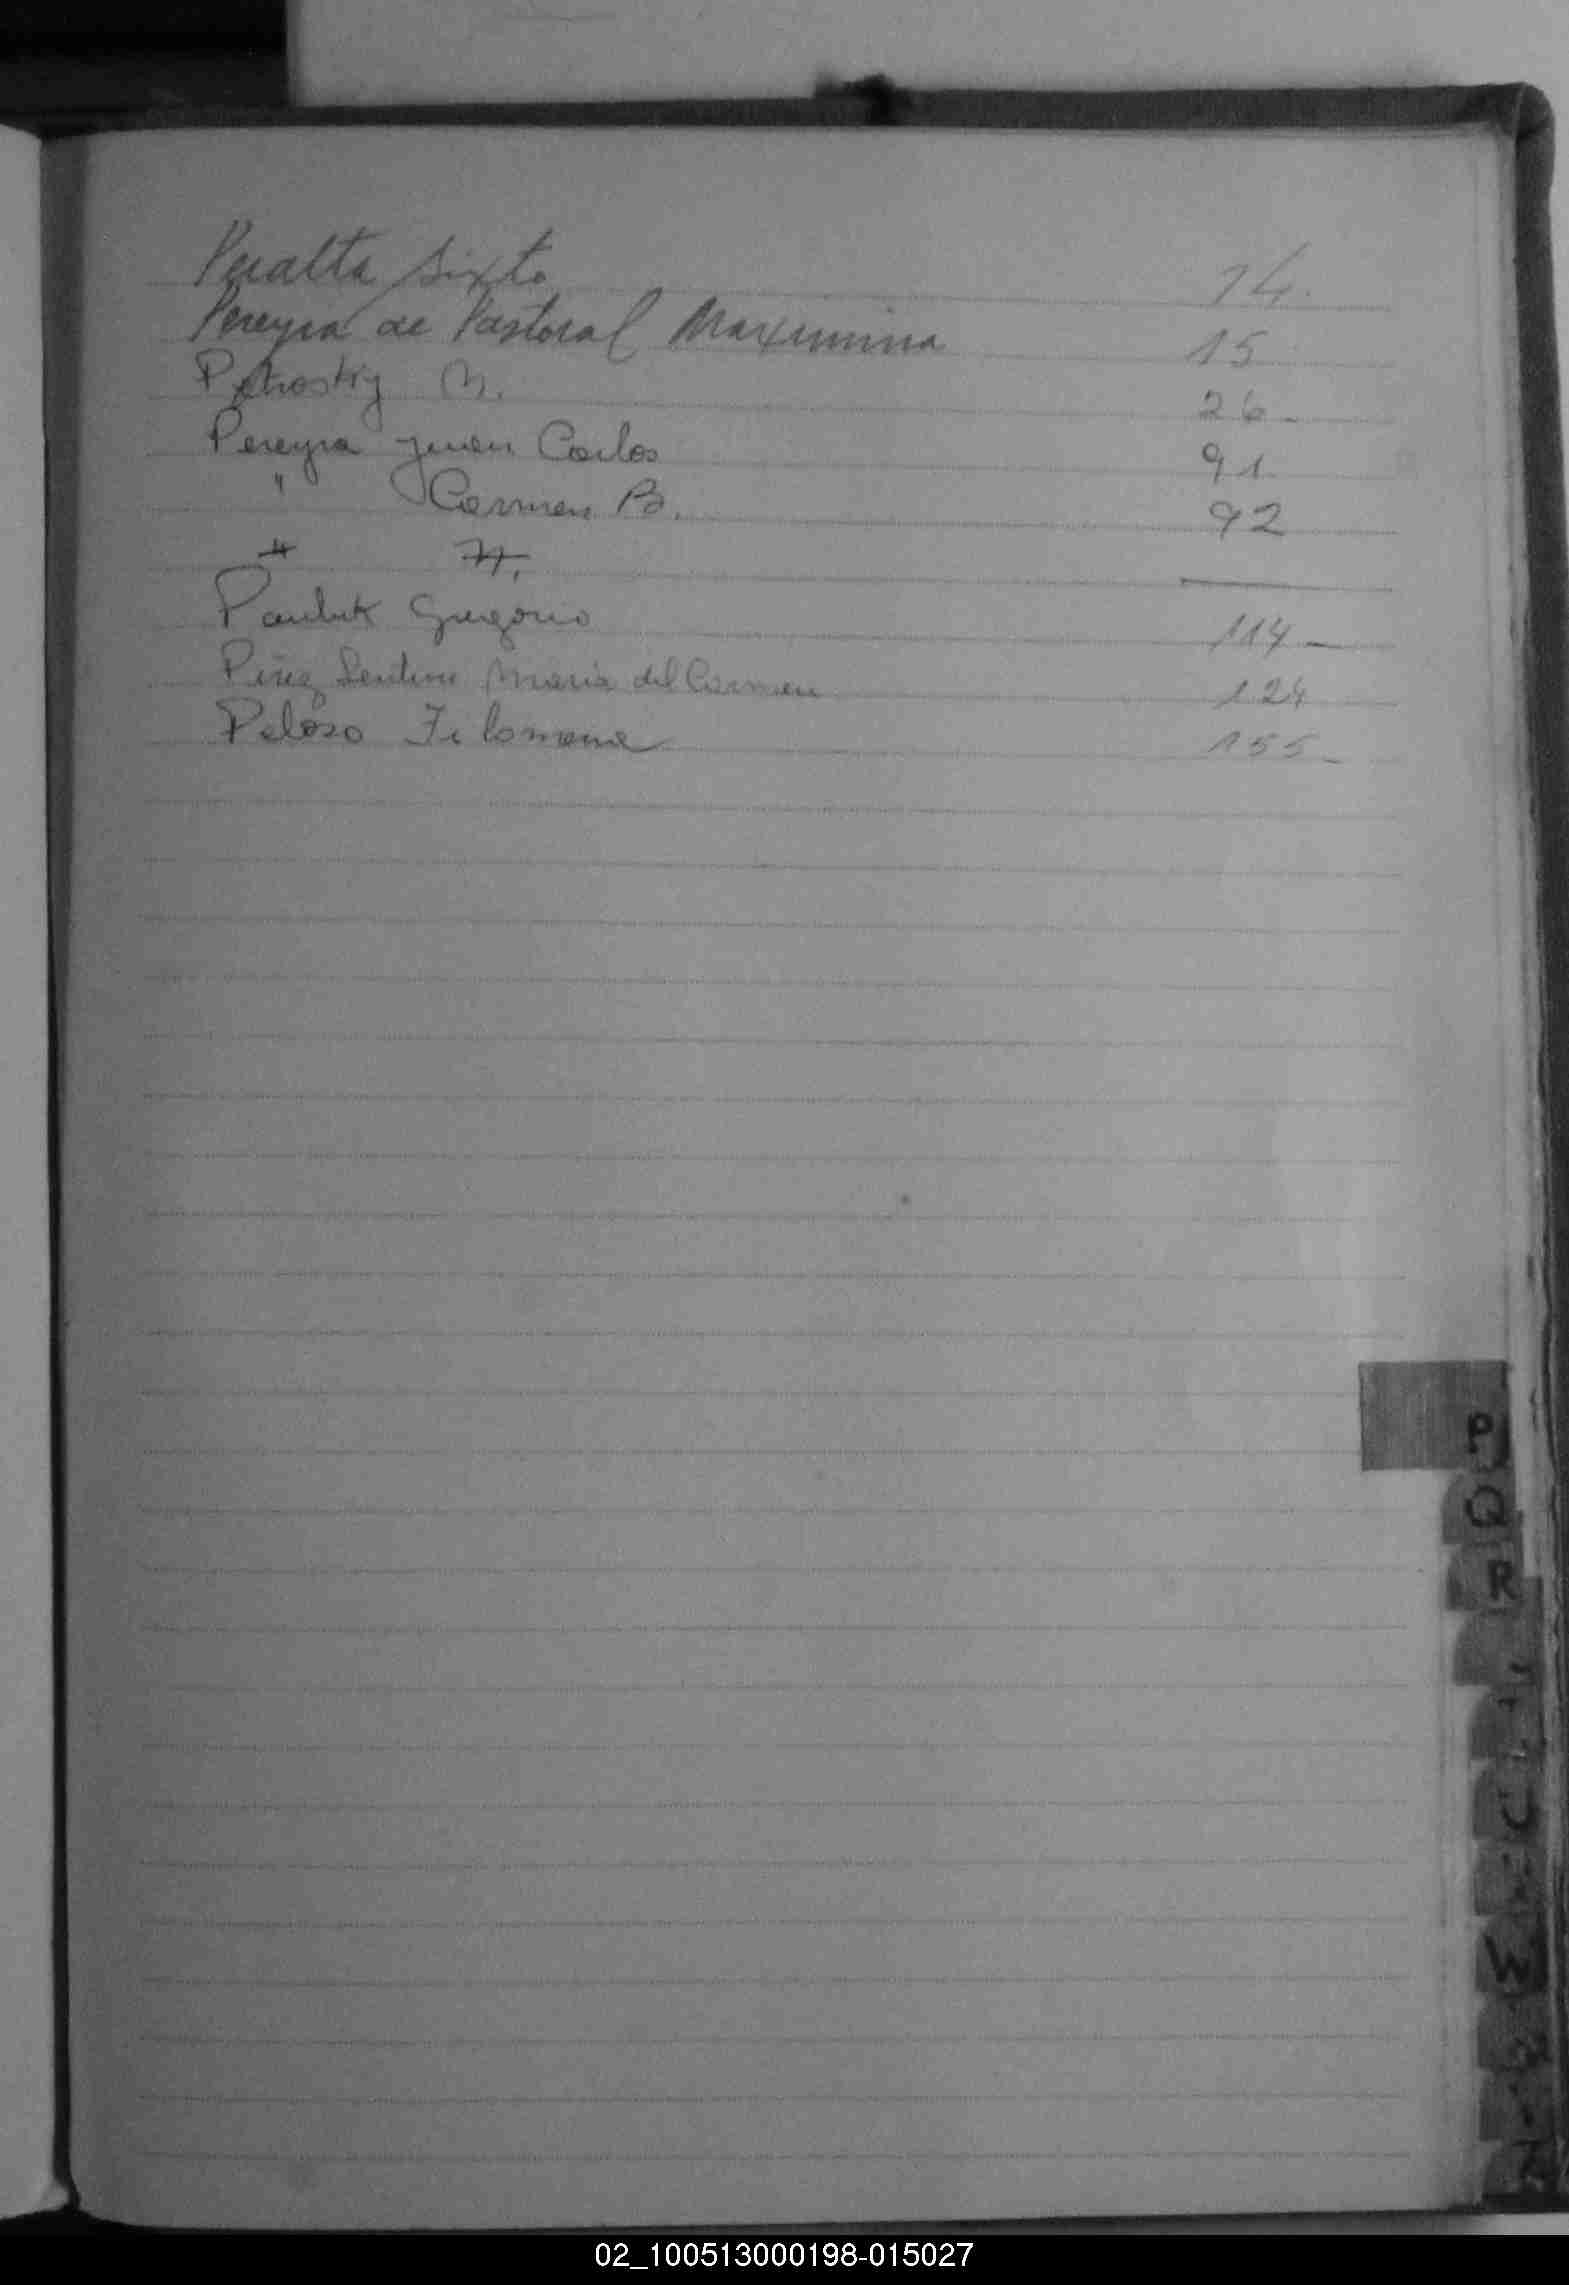 Peralta Sixto 14.
Pereyra de Pastoral Maximina 15
Petrosky M. 26 -
Pereyra Juan Carlos 91
" Carmen B. 92
" H.
Pauluk Gregorio 114 -
Pérez María del Carmen 124
Peloso Filomena 155 -
P
Q
R
U
W
Z
02_100513000198-015027